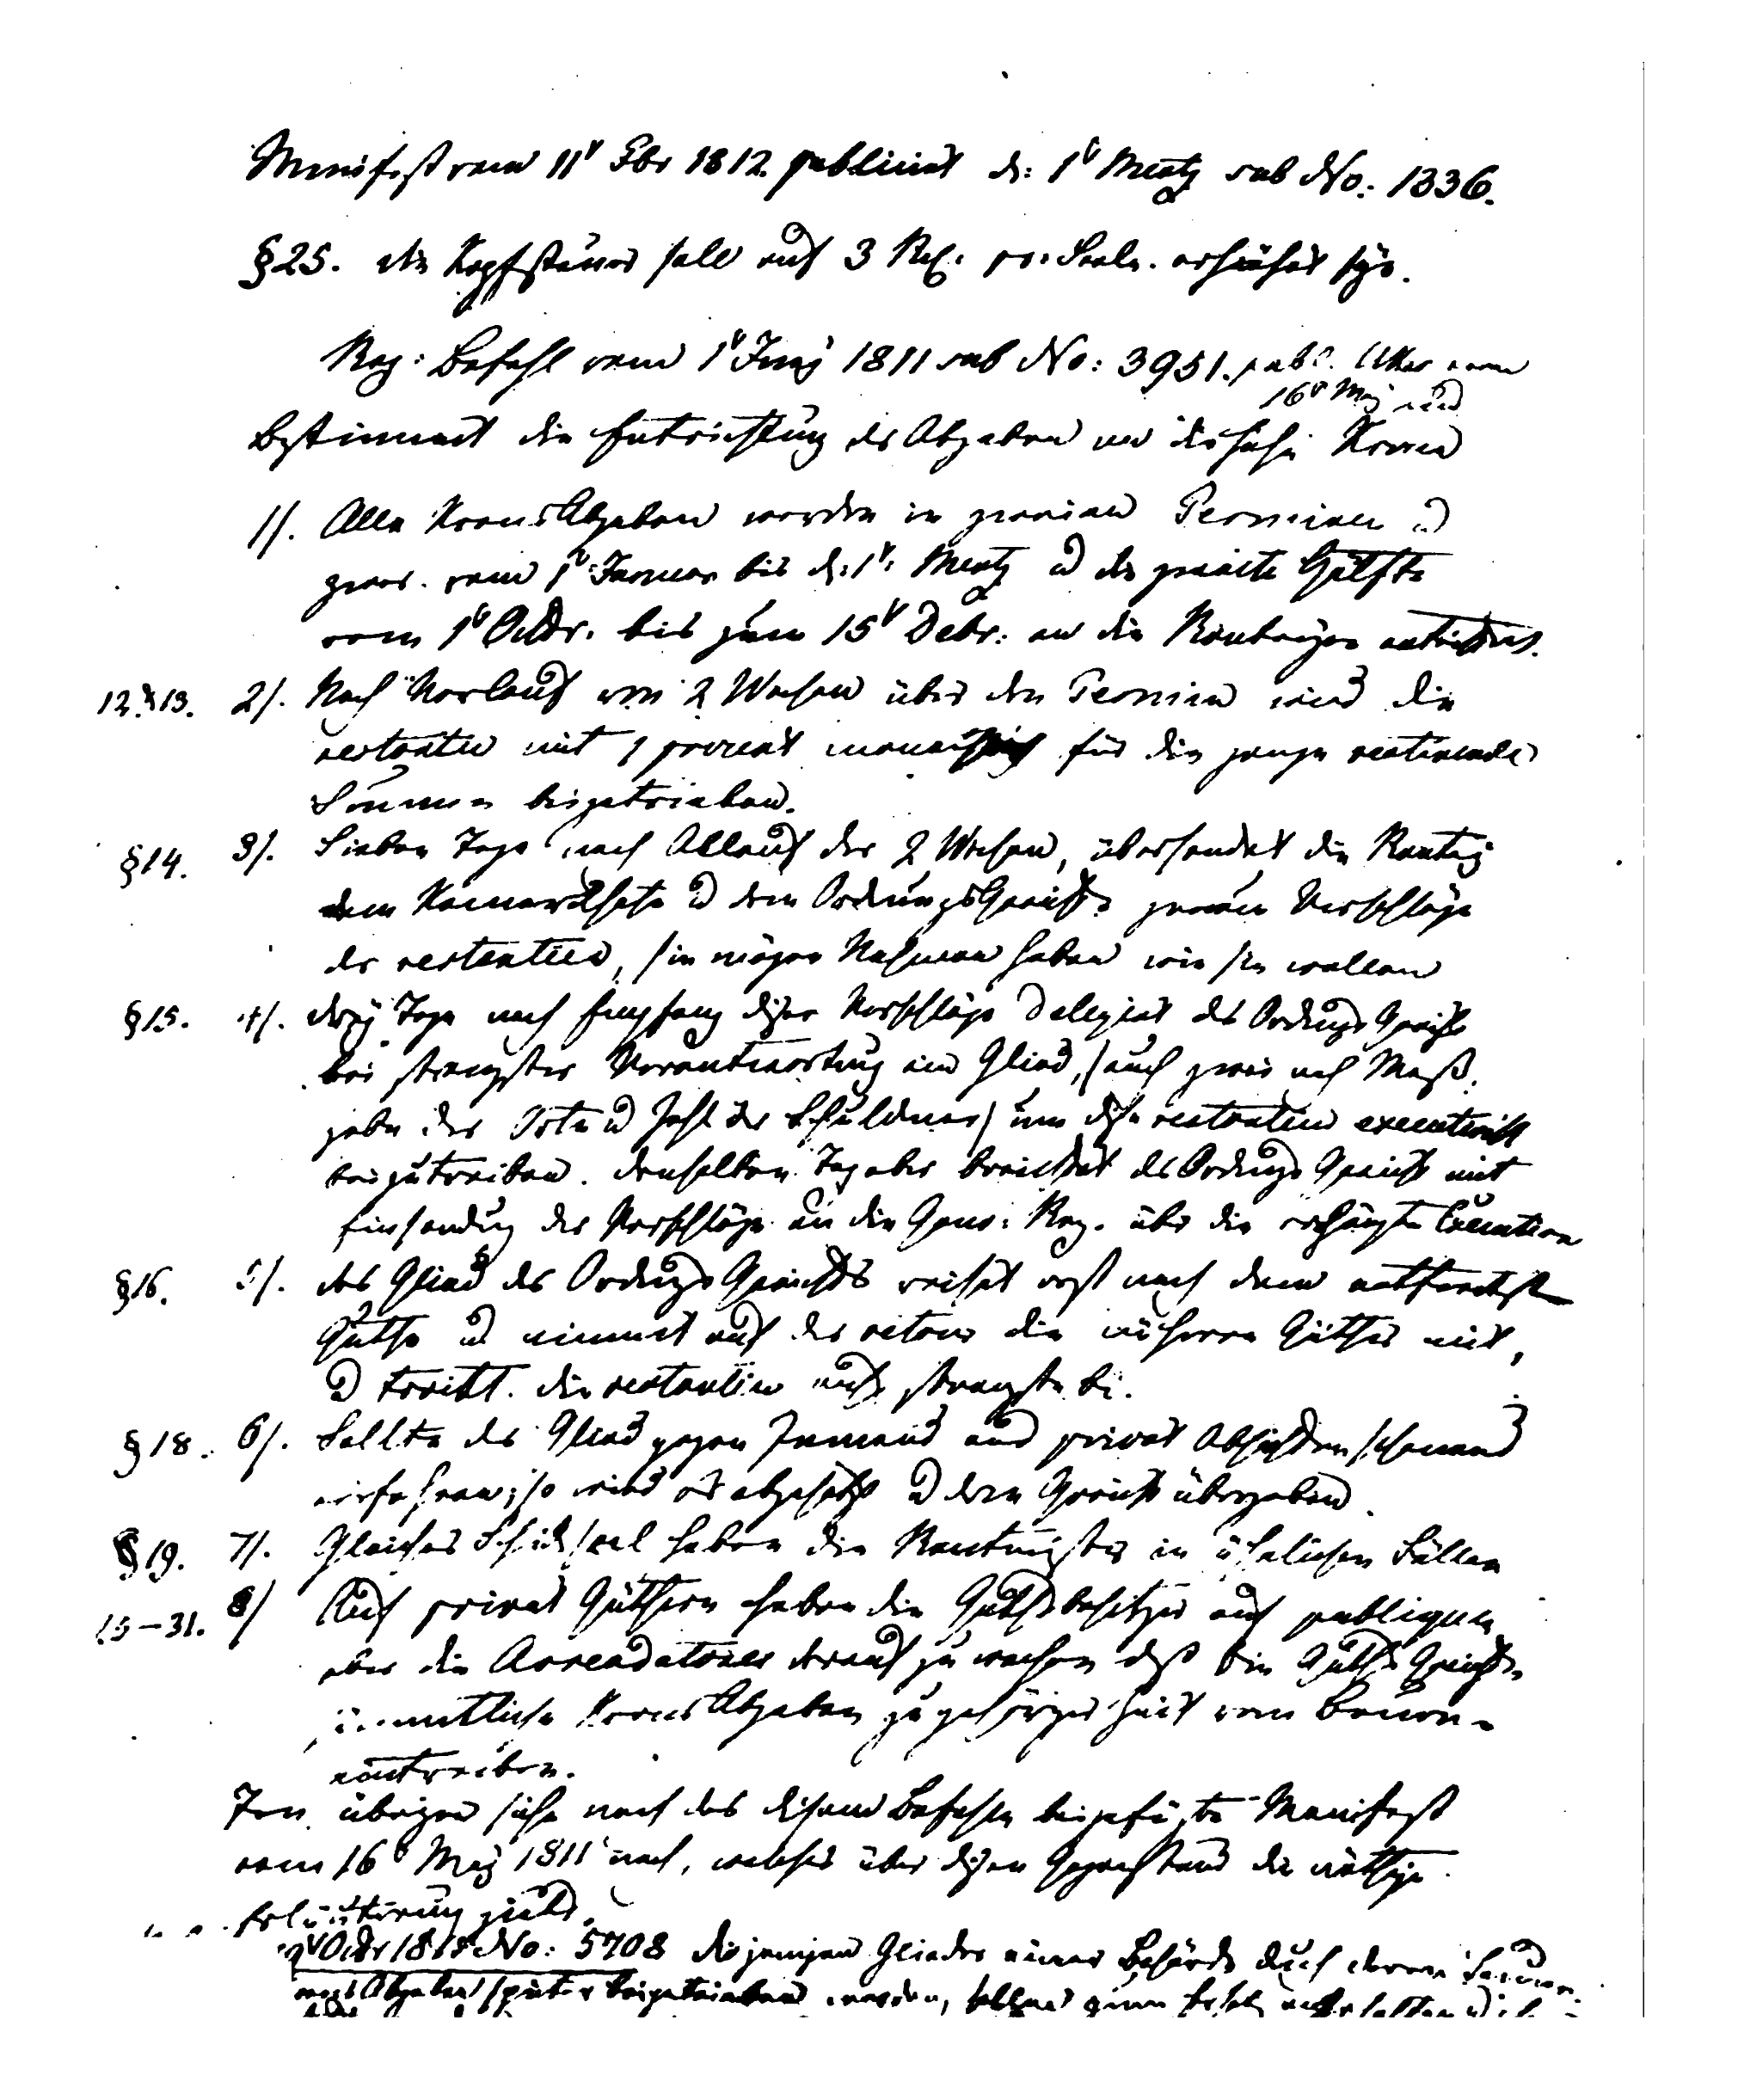 Manifest vom 11t Febr 1812. publicirt d: 1t Mertz sub No: 1336.
§25. die Kopfsteuer soll auf 3 Rbl. pr. Seele erhöhet seyn.
Reg: Befehl vom 1t Junij 1811 sub No: 3951. publ. Ukas vom
16t Maj und
Bestimmt die Entrichtung der Abgaben an die hohe Krone
1/. Alle KronsAbgaben werden in zweien Terminen u
zwar vom 1t Januar bis d: 1t Mertz u die zweite Hälfte
vom 1t Octbr. bis zum 15t Debr: an die Renteyen entrichtet.
12. & 13. 2/. Nach Verlauf von 2 Wochen über den Termin wird die
restantien mit 1 procent monatlich für die ganze restirende
Summe beigetrieben.
§14. 3/. Sieben Tage nach Ablauf der 2 Wochen, übersendet die Rentey
dem Kameralhofe u dem OrdnungsGericht genaue Verschläge
der restantien, sie mögen Nahmen haben wie sie wollen
§15. 4/. drey Tage nach Empfang dieser Verschläge delegirt das Ordnungs Gericht
bei strengster Verantwortung ein Glied, (auch zwei nach Maß-
gabe der Orte u Zahl der Schuldner) um diese restantien executivisch
beizutreiben. denselben Tag aber berichtet das Ordnungs Gericht mit
Einsendung der Verschläge an die Gouv: Reg. über die verhängte Execution
§16. 5/. das Glied des Ordnungs Gerichts reiset erst nach dem entferntesten
Guthe u nimmt auf der retour die näheren Güther mit,
u treibt die restantien aufs strengste bei.
§18. 6/. Sollte das Glied gegen Jemand aus privat Absichten schonend
verfahren; so wird es abgesetzt u dem Gericht übergeben.
§19. 7/. Gleiches Schicksal haben die Rentmeister in ähnlichen Fällen
15-31. 8/ Auf privat Güthern haben die Guthsbesitzer auf publiquen
aber die Arrendatores darauf zu wachen daß die Guths Gerichte
sämmtliche KronsAbgaben zu gehöriger Zeit vom Bauern
eintreiben.
Im übrigen siehe nach das diesem Befehle beigefügte Manifest
vom 16t Maj 1811 nach, welches über diesen Gegenstand die nöthige
Erläuterung giebt.
Octbr No: 5708 diejenigen Glieder einer Behörde durch deren
Abgaben später beigetrieben werden, sollen